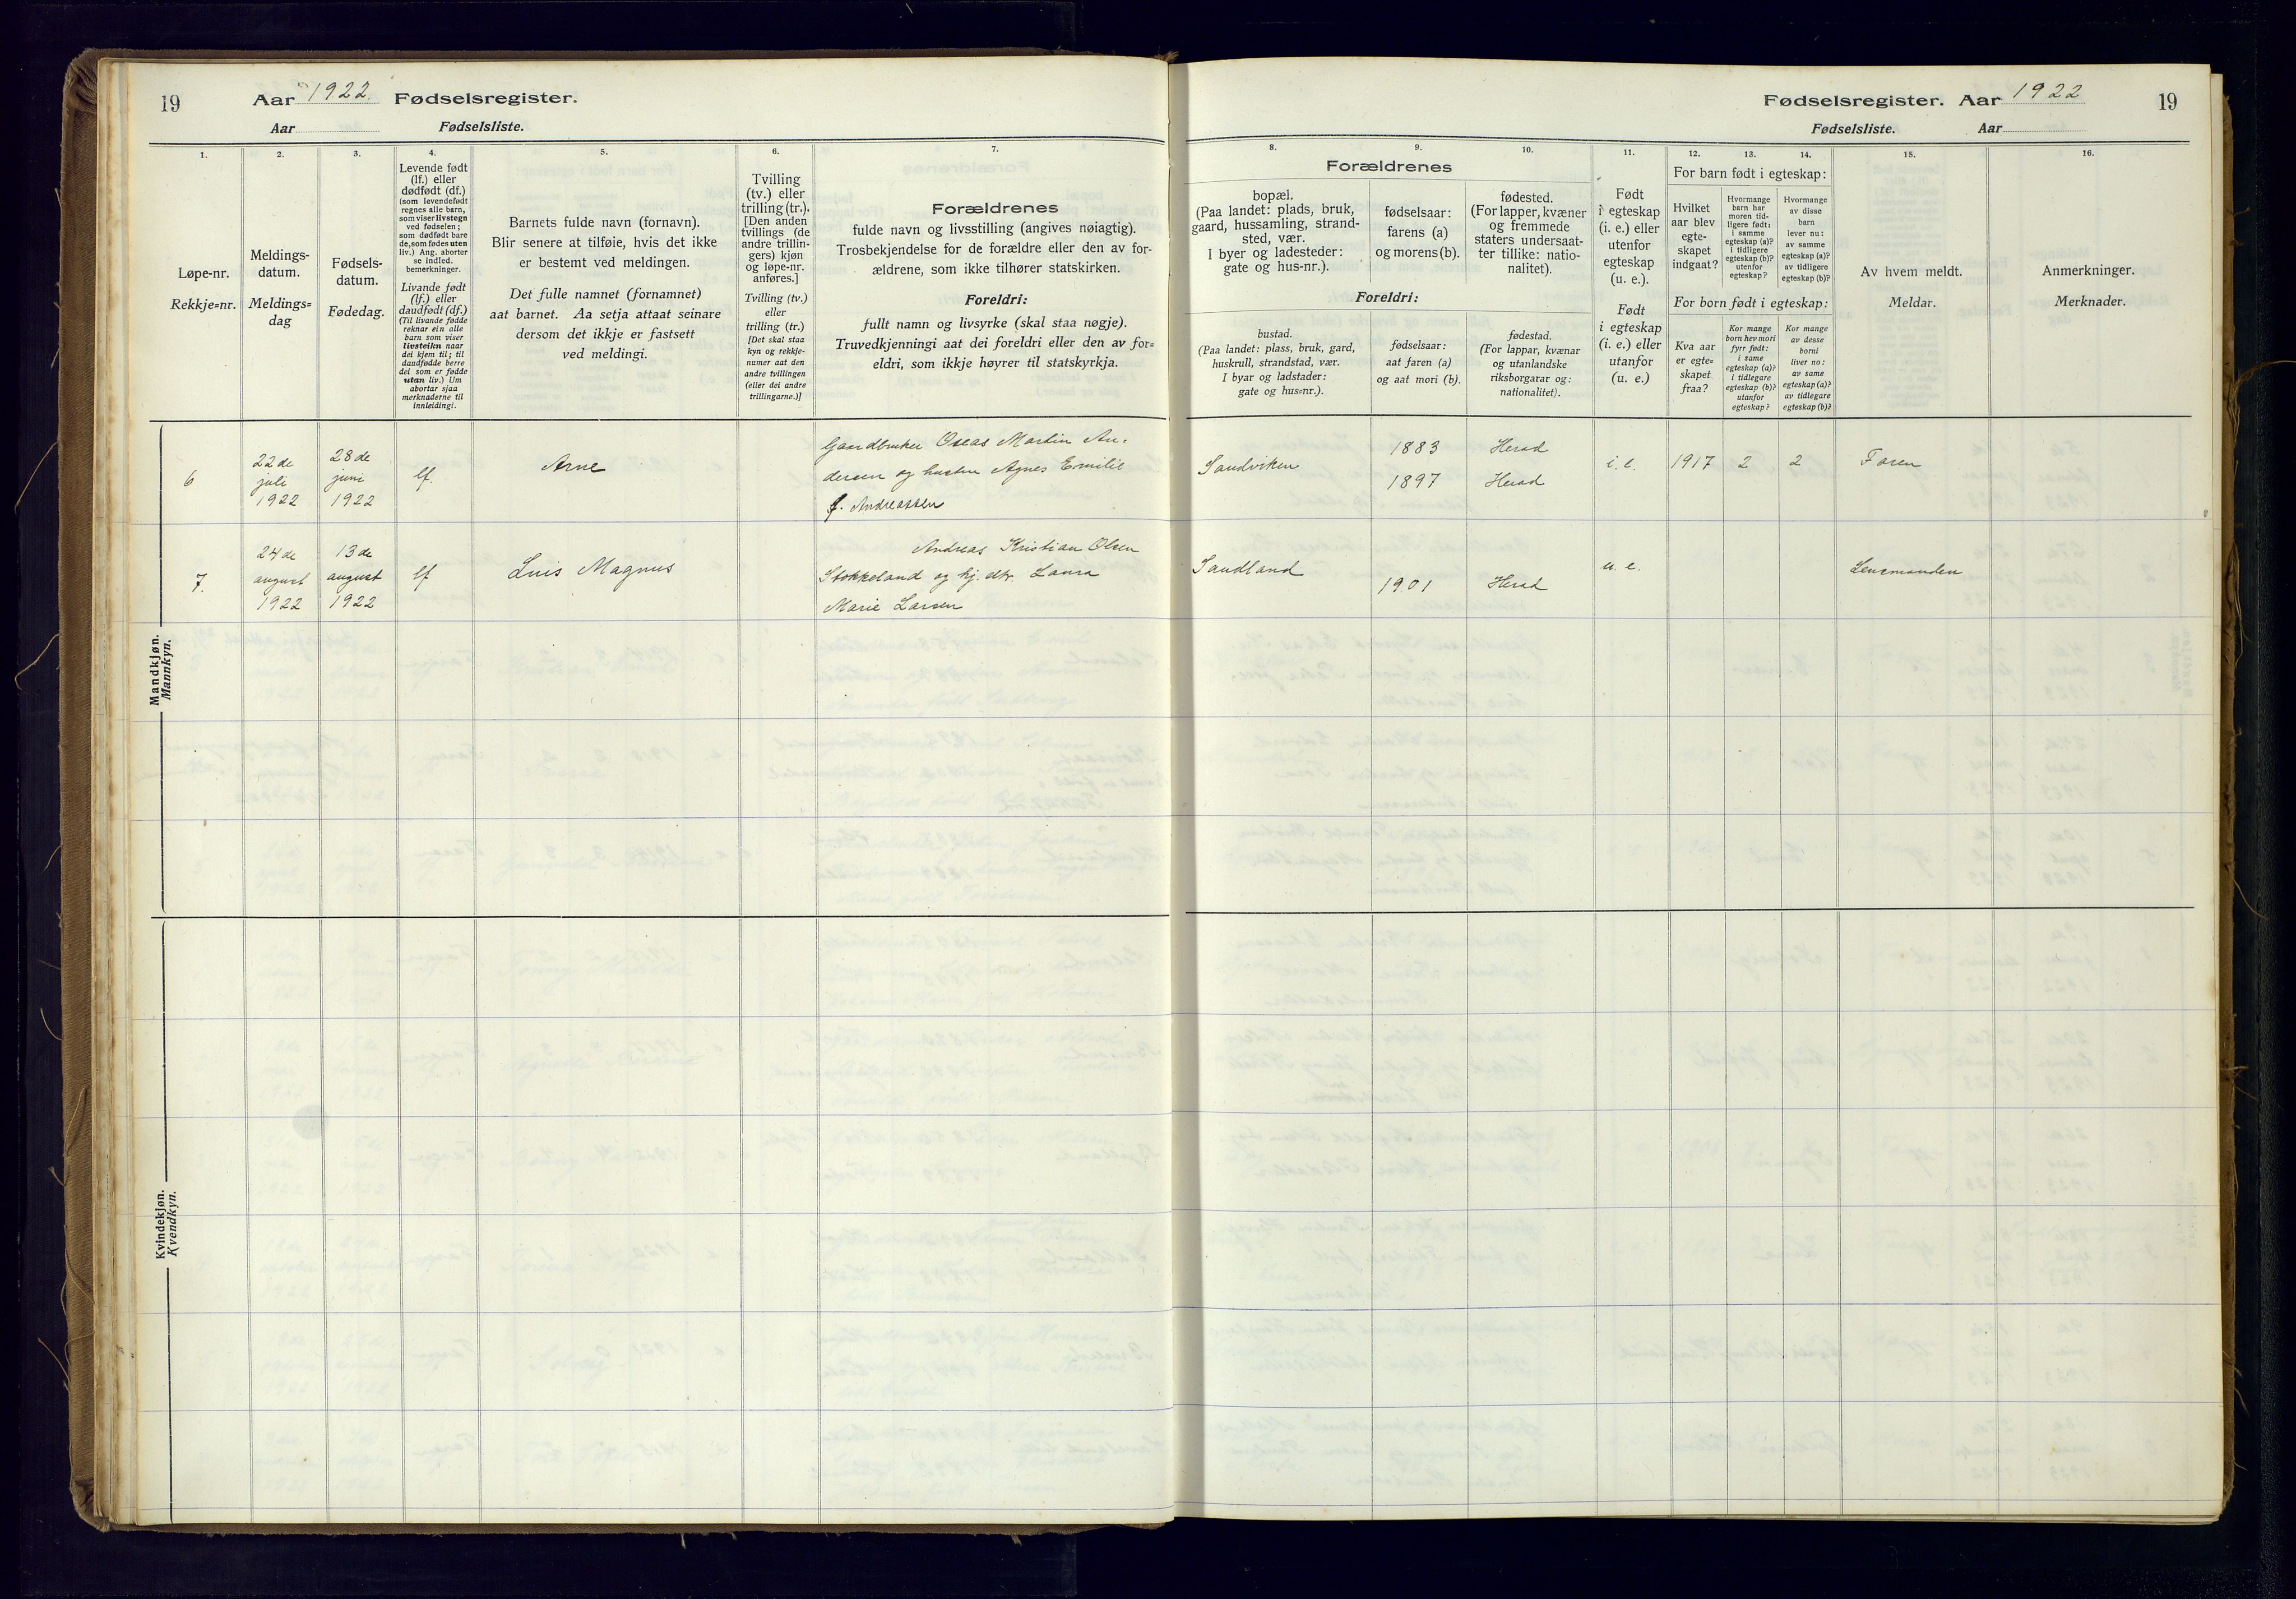 19
Aar 1922. Fødselsregister.
Aar
Fødselsliste.
Fødselsregister. Aar 1922
19
Fødselsliste.
Aar
1.
Løpe-nr.
Rekkje=nr.
2.
Meldings-
datum.
Meldings=
dag
3.
Fødsels-
datum.
Fødedag.
4.
Levende født
(lf.) eller
dødfødt (df.)
(som levendefødt
regnes alle barn,
som viser livstegn
ved fødselen;
som dødfødt bare
de, som fødes uten
liv.) Ang. aborter
se indled.
bemerkninger.
Livande født
(lf.) eller
daudfødt (df.)
(Til livande fødde
reknar ein alle
barn som viser
livsteikn naar
dei kjem til; til
daudfødde berre
dei som er fødde
utan liv.) Um
abortar sjaa
merknaderne til
innleidingi.
5.
Barnets fulde navn (fornavn).
Blir senere at tilføie, hvis det ikke
er bestemt ved meldingen.
Det fulle namnet (fornamnet)
aat barnet. Aa setja attaat seinare
dersom det ikkje er fastsett
ved meldingi.
6.
Tvilling
(tv.) eller
trilling (tr.).
[Den anden
tvillings (de
andre trillin-
gers) kjøn
og løpe-nr.
anføres.]
Tvilling (tv.)
eller
trilling (tr.)
[Det skal staa
kyn og rekkje-
numer aat den
andre tvillingen
(eller dei andre
trillingarne.)]
7.
Forældrenes
fulde navn og livsstilling (angives nøiagtig).
Trosbekjendelse for de forældre eller den av for-
ældrene, som ikke tilhører statskirken.
Foreldri:
fullt namn og livsyrke (skal staa nøgje).
Truvedkjenningi aat dei foreldri eller den av for=
eldri, som ikkje høyrer til statskyrkja.
Forældrenes
8.
bopæl.
(Paa landet: plads, bruk,
gaard, hussamling, strand-
sted, vær.
I byer og ladesteder:
gate og hus-nr.).
9.
fødselsaar:
farens (a)
og morens (b).
10.
fødested.
(For lapper, kvæner
og fremmede
staters undersaat-
ter tillike: natio-
nalitet).
Foreldri:
bustad.
(Paa landet: plass, bruk, gard,
huskrull, strandstad, vær.
I byar og ladstader:
gate og hus=nr.).
fødselsaar:
aat faren (a)
og aat mori (b).
fødestad.
(For lappar, kvænar
og utanlandske
riksborgarar og:
nationalitet).
11.
Født
i egteskap
(i. e.) eller
utenfor
egteskap
(u. e.).
Født
i egteskap
(i. e.) eller
utanfor
(u. e.)
For barn født i egteskap:
12.
Hvilket
aar blev
egte-
skapet
indgaat?
13.
Hvormange
barn har
moren tid-
ligere født:
i samme
egteskap (a)?
i tidligere
egteskap (b)?
utenfor
egteskap?
14.
Hvormange
av disse
barn
lever nu:
av samme
egteskap (a)?
av tidligere
egteskap (b)?
For born født i egteskap:
Kva aar
er egte=
skapet
fraa?
Kor mange
born hev mori
fyrr født:
i same
egteskap (a)?
i tidlegare
egteskap (b)?
utanfor
egteskap?
Kor mange
av desse
borni
liver no:
av same
egteskap (a)?
av tidlegare
egteskap (b)?
15.
Av hvem meldt.
Meldar.
16.
Anmerkninger.
Merknader.
Mandkjøn.
Mannkyn.
6
22de
juli
1922
28de
juni
1922
lf.
Arne
Gaardbruker Oseas Martin An-
dersen og hustru Agnes Emilie
f. Andreassen
Sandviken
1883
1897
Herad
Herad
i. e.
1917
2
2
Faren
7.
24de
august
1922
13de
august
1922
lf
Luis Magnus
Andreas Kristian Olsen
Stokkeland og pj. dtr. Laura
Marie Larsen
Sandland
1901
Herad
u. e.
Lensmanden
Kvindekjøn.
Kvendkyn.